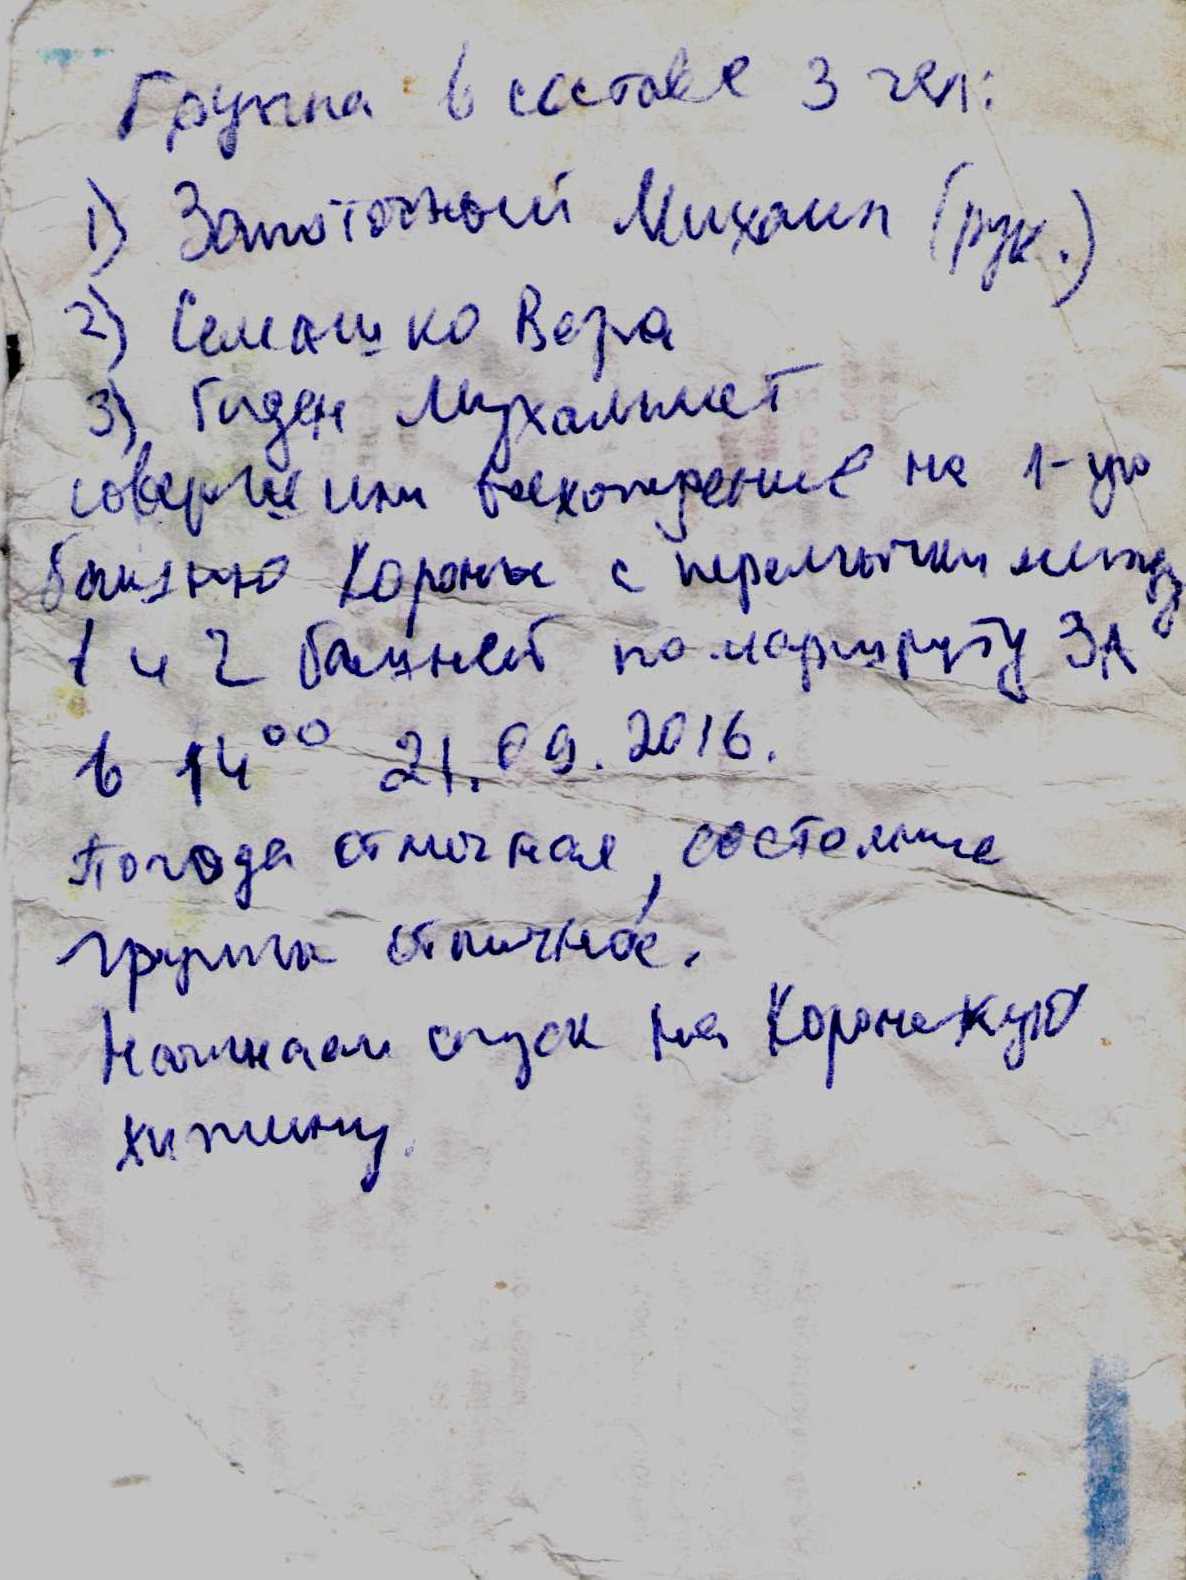 Группа в составе 3 чел:
1) Запоточный Михаил (рук.)
2) Семашко Вера
3) Гиден Мухаммет
совершили восхождение на 1-ую
башню Короны с перемычки между
1 и 2 башней по маршруту 3А
в 14⁰⁰ 21.09.2016.
Погода отличная, состояние
группы отличное.
Начинаем спуск на Коронскую
хижину.